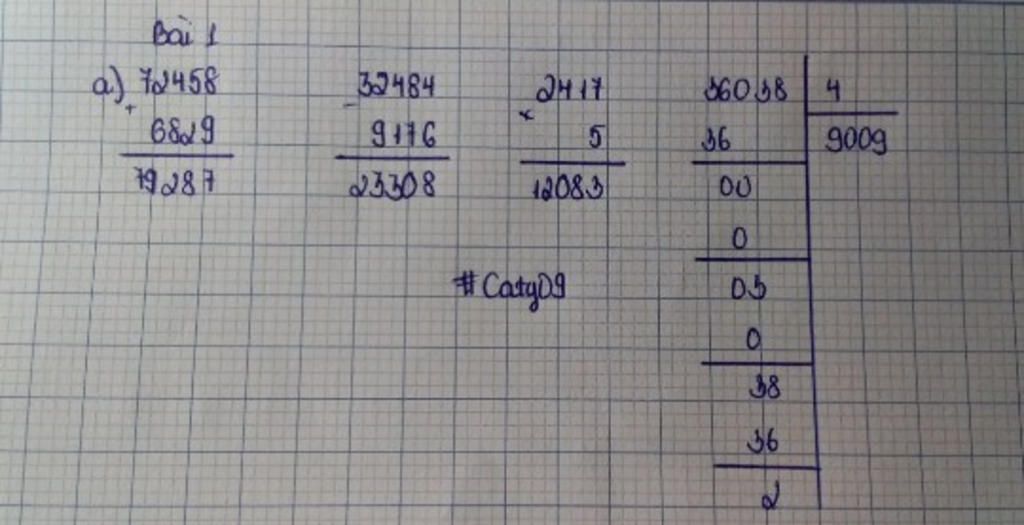 Bài 1
a) 72458
+
6829
79287
32484
-
9176
23308
2417
x
5
12083
36038 4
36 9009
00
0
03
0
38
36
2
#Caty09